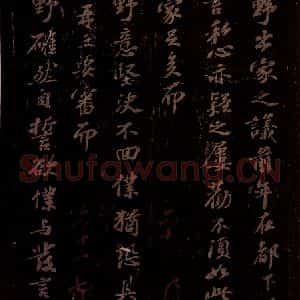 野出家之議前年在都下
言私心亦疑之屢勸不須如此
家是矣而
野意堅決不回僕猶恐具
再三災審而
野確然自誓欲僕与發言
Shufawang.CN